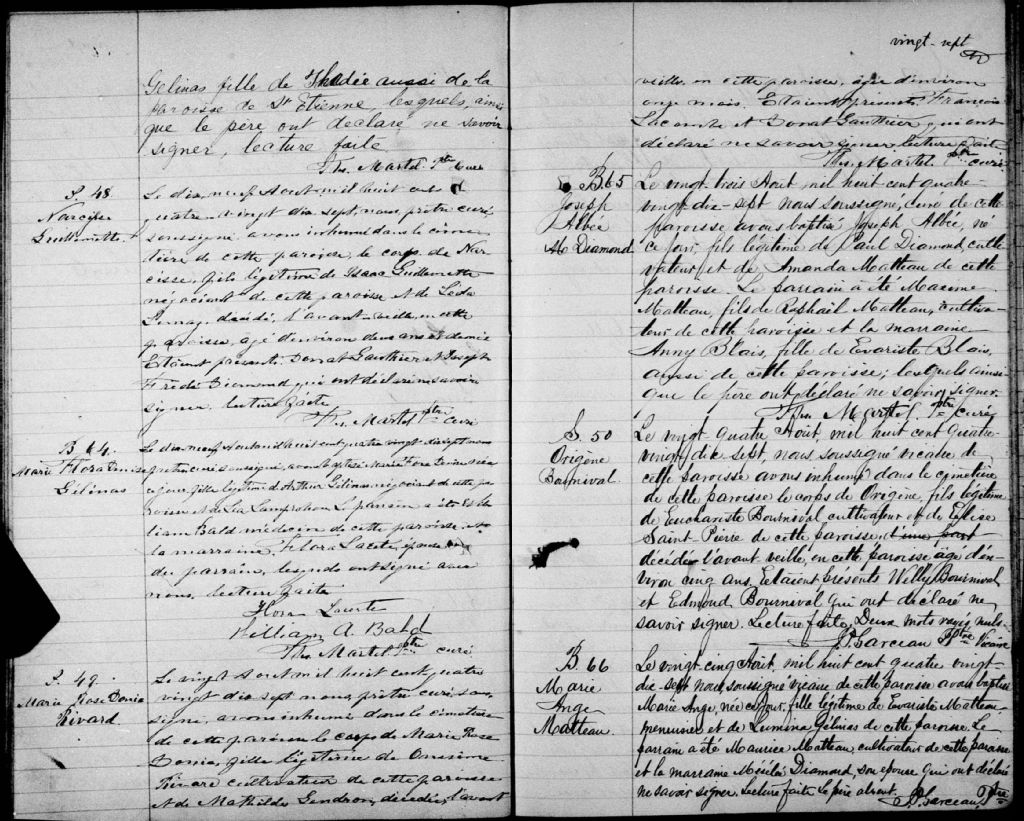 Gélinas fille de Thadée aussi de la
paroisse de St Etienne, lesquels, ainsi
que le père ont déclaré ne savoir
signer, lecture faite
Ths. Martel Ptre Curé
S. 48
Narcisse
Guillemette
Le dix neuf Aout mil huit cent
quatre-vingt dix sept, nous prêtre curé
soussigné avons inhumé dans le cime
tière de cette paroisse, le corps de Nar
cisse, fils légitime de Isaac Guillemette
négociant de cette paroisse et de Léda
décédé, l'avant-veille, en cette
paroisse, agé d'environ deux ans et demie
Etaient présents Donat Gauthier et Joseph
Frédé Diamond, qui ont déclaré ne savoir
signer, lecture faite
Ths. Martel Ptre curé
B 64.
Marie Flora Denise
Gélinas
Le dix neuf Aout mil huit cent quatre vingt dix sept nous
prêtre curé soussigné, avons baptisé Marie Flora Denise née
ce jour, fille légitime d'Arthur Gélinas négociant de cette pa
roisse et de Lampron Le parrain a été Wil
liam Bald médecin de cette paroisse, et
la marraine, Flora épouse
du parrain, lesquels ont signé avec
nous, lecture faite
Flora
William A. Bald
Ths Martel Ptre curé
S. 49
Marie Rose Donia
Rivard
Le vingt Aout mil huit cent quatre
vingt dix sept nous, prêtre curé sous
signé, avons inhumé dans le cimetière
de cette paroisse le corps de Marie Rose
Donia, fille légitime de Onésime
Rivard cultivateur de cette paroisse
et de Mathilde Gendron, décédée, l'avant
vingt-sept
veille en cette paroisse, agée d'environ
onze mois. Etaient présents François
Lacombe et Donat Gauthier, qui ont
déclaré ne savoir signer, lecture faite
Ths. Martel Ptre curé
B. 65
Joseph
Albée
M Diamond
Le vingt trois Août, mil huit cent quatre-
vingt-dix-sept nous soussigné, curé de cette
paroisse avons baptisé Joseph Albée, né
ce jour, fils légitime de Paul Diamond, culti
vateur et de Amanda Matteau de cette
paroisse. Le parrain a été Maxime
Matteau, fils de Raphaël Matteau, cultiva-
teur de cette paroisse et la marraine
Anny Blais, fille de Evariste Blais,
aussi de cette paroisse; lesquels ainsi
que le père ont déclaré ne savoir signer.
Ths. Martel. Ptre curé
S. 50
Origène
Bournival
Le vingt quatre Août, mil huit cent quatre-
vingt dix sept, nous, soussigné vicaire de
cette paroisse avons inhumé dans le cimetière
de cette paroisse le corps de Origène, fils légitime
de Euchariste Bournival cultivateur et de Eglise
Saint-Pierre de cette paroisse d'une part
décédé l'avant veille, en cette paroisse âgé d'en
viron cinq ans, Etaient présents Willy Bournival
et Edmond Bournival qui ont déclaré ne
savoir signer. Lecture faite. Deux mots rayés nuls.
Garceau Ptre Vicaire
B. 66
Marie
Ange
Matteau
Le vingt cinq Août, mil huit cent quatre vingt-
dix-sept Nous, soussigné vicaire de cette paroisse avons baptisé
Marie Ange, née ce jour, fille légitime de Evariste Matteau
menuisier et de Lumina Gélinas de cette paroisse. Le
parrain a été Maurice Matteau, cultivateur de cette paroisse
et la marraine Diamond, son épouse qui ont déclaré
ne savoir signer. Lecture faite Le père absent.
Garceau, Ptre